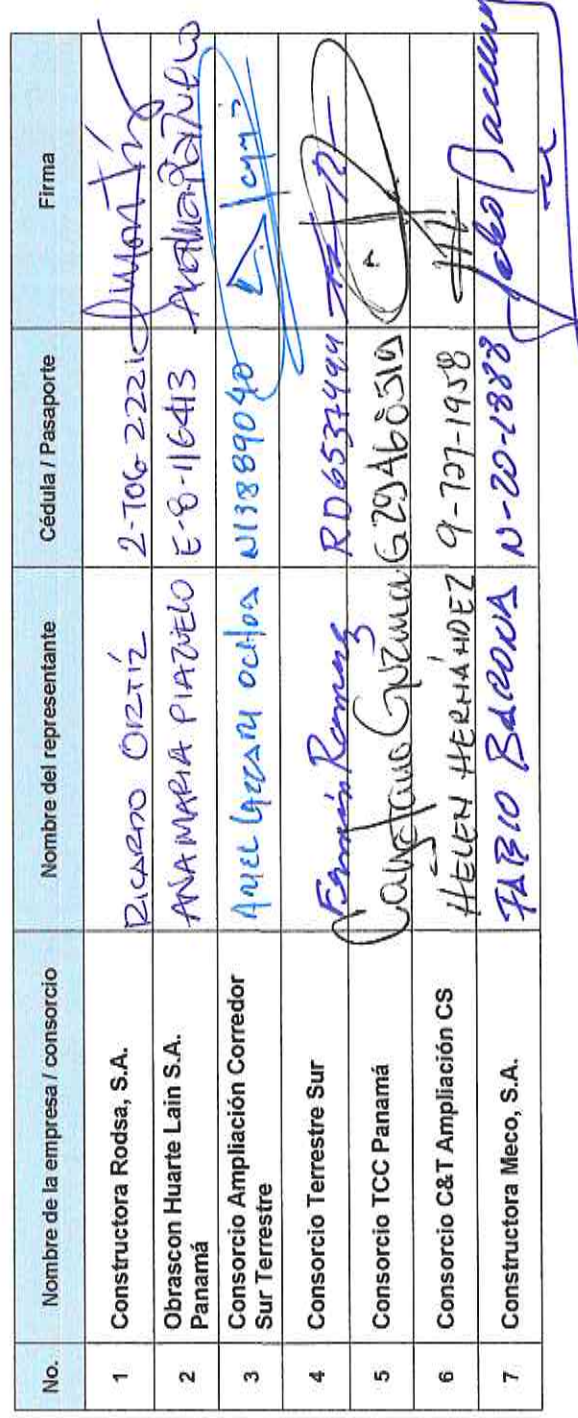 No. Nombre de la empresa / consorcio Nombre del representante Cédula / Pasaporte Firma
1 Constructora Rodsa, S.A. RICARDO ORTÍZ 2-706-2221
2 Obrascon Huarte Lain S.A. Panamá ANA MARIA PIAZUELO E-8-116413
3 Consorcio Ampliación Corredor Sur Terrestre N13889040
4 Consorcio Terrestre Sur Fermín Ramirez RD6537499
5 Consorcio TCC Panamá Cayetano Guzman
6 Consorcio C&T Ampliación CS HELEN HERNÁNDEZ 9-727-1958
7 Constructora Meco, S.A. FABIO BARONA N-20-1888